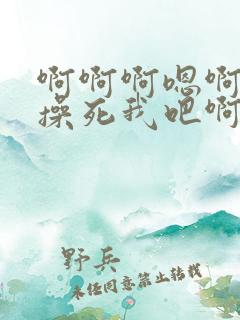 啊啊啊嗯啊
操死我吧啊
野兵
未经同意禁止转载